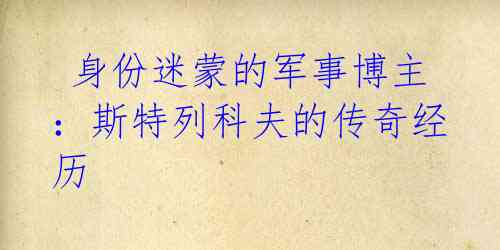 身份迷蒙的军事博主
：斯特列科夫的传奇经
历